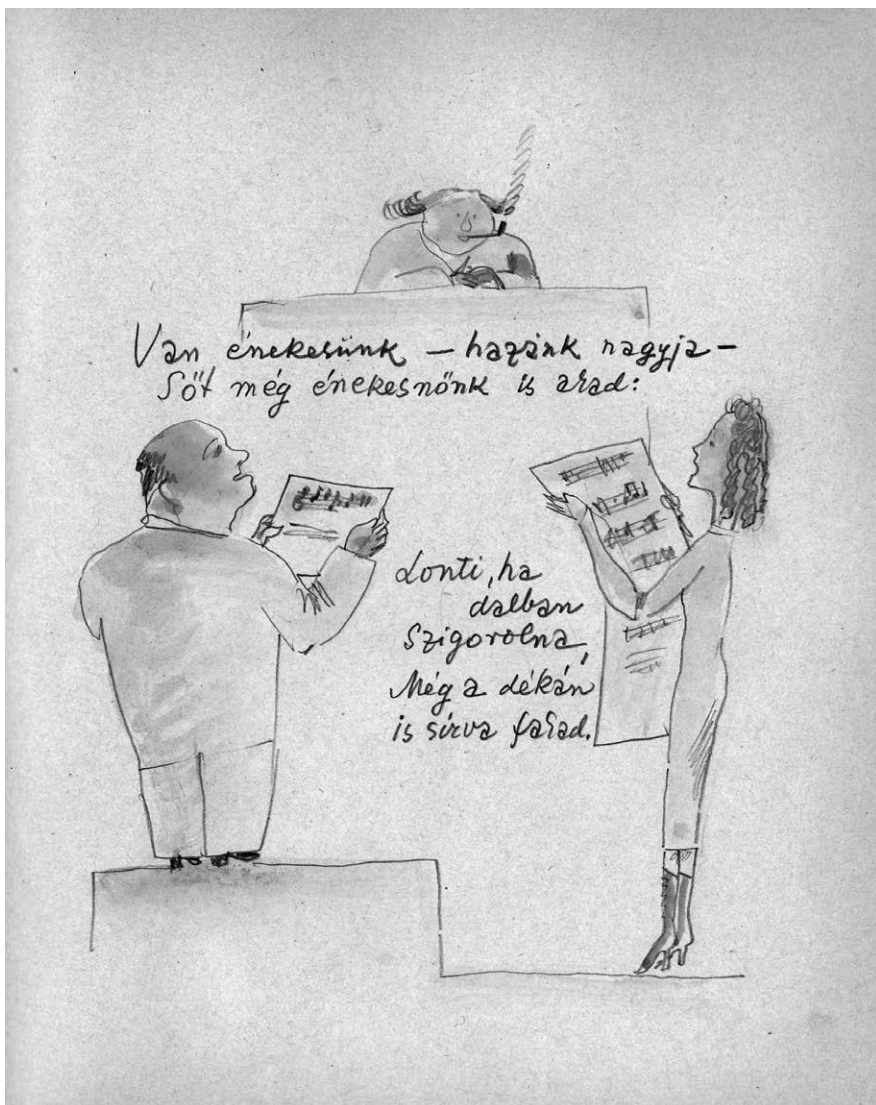 Van énekesünk – hazánk nagyja –
Sőt még énekesnőnk is akad:
Lonti, ha
dalban
Szigorolna,
Még a dékán
is sírva fakad.